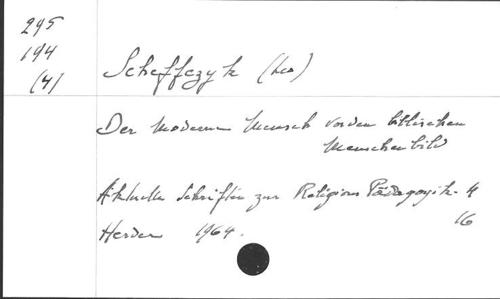 295
194
(4)
Scheffczyk (Leo)
Der moderne Mensch vor dem biblischen
Menschenbild
Aktuelle Schriften zur Religions Pädagogik. 4
Herder 1964.
16